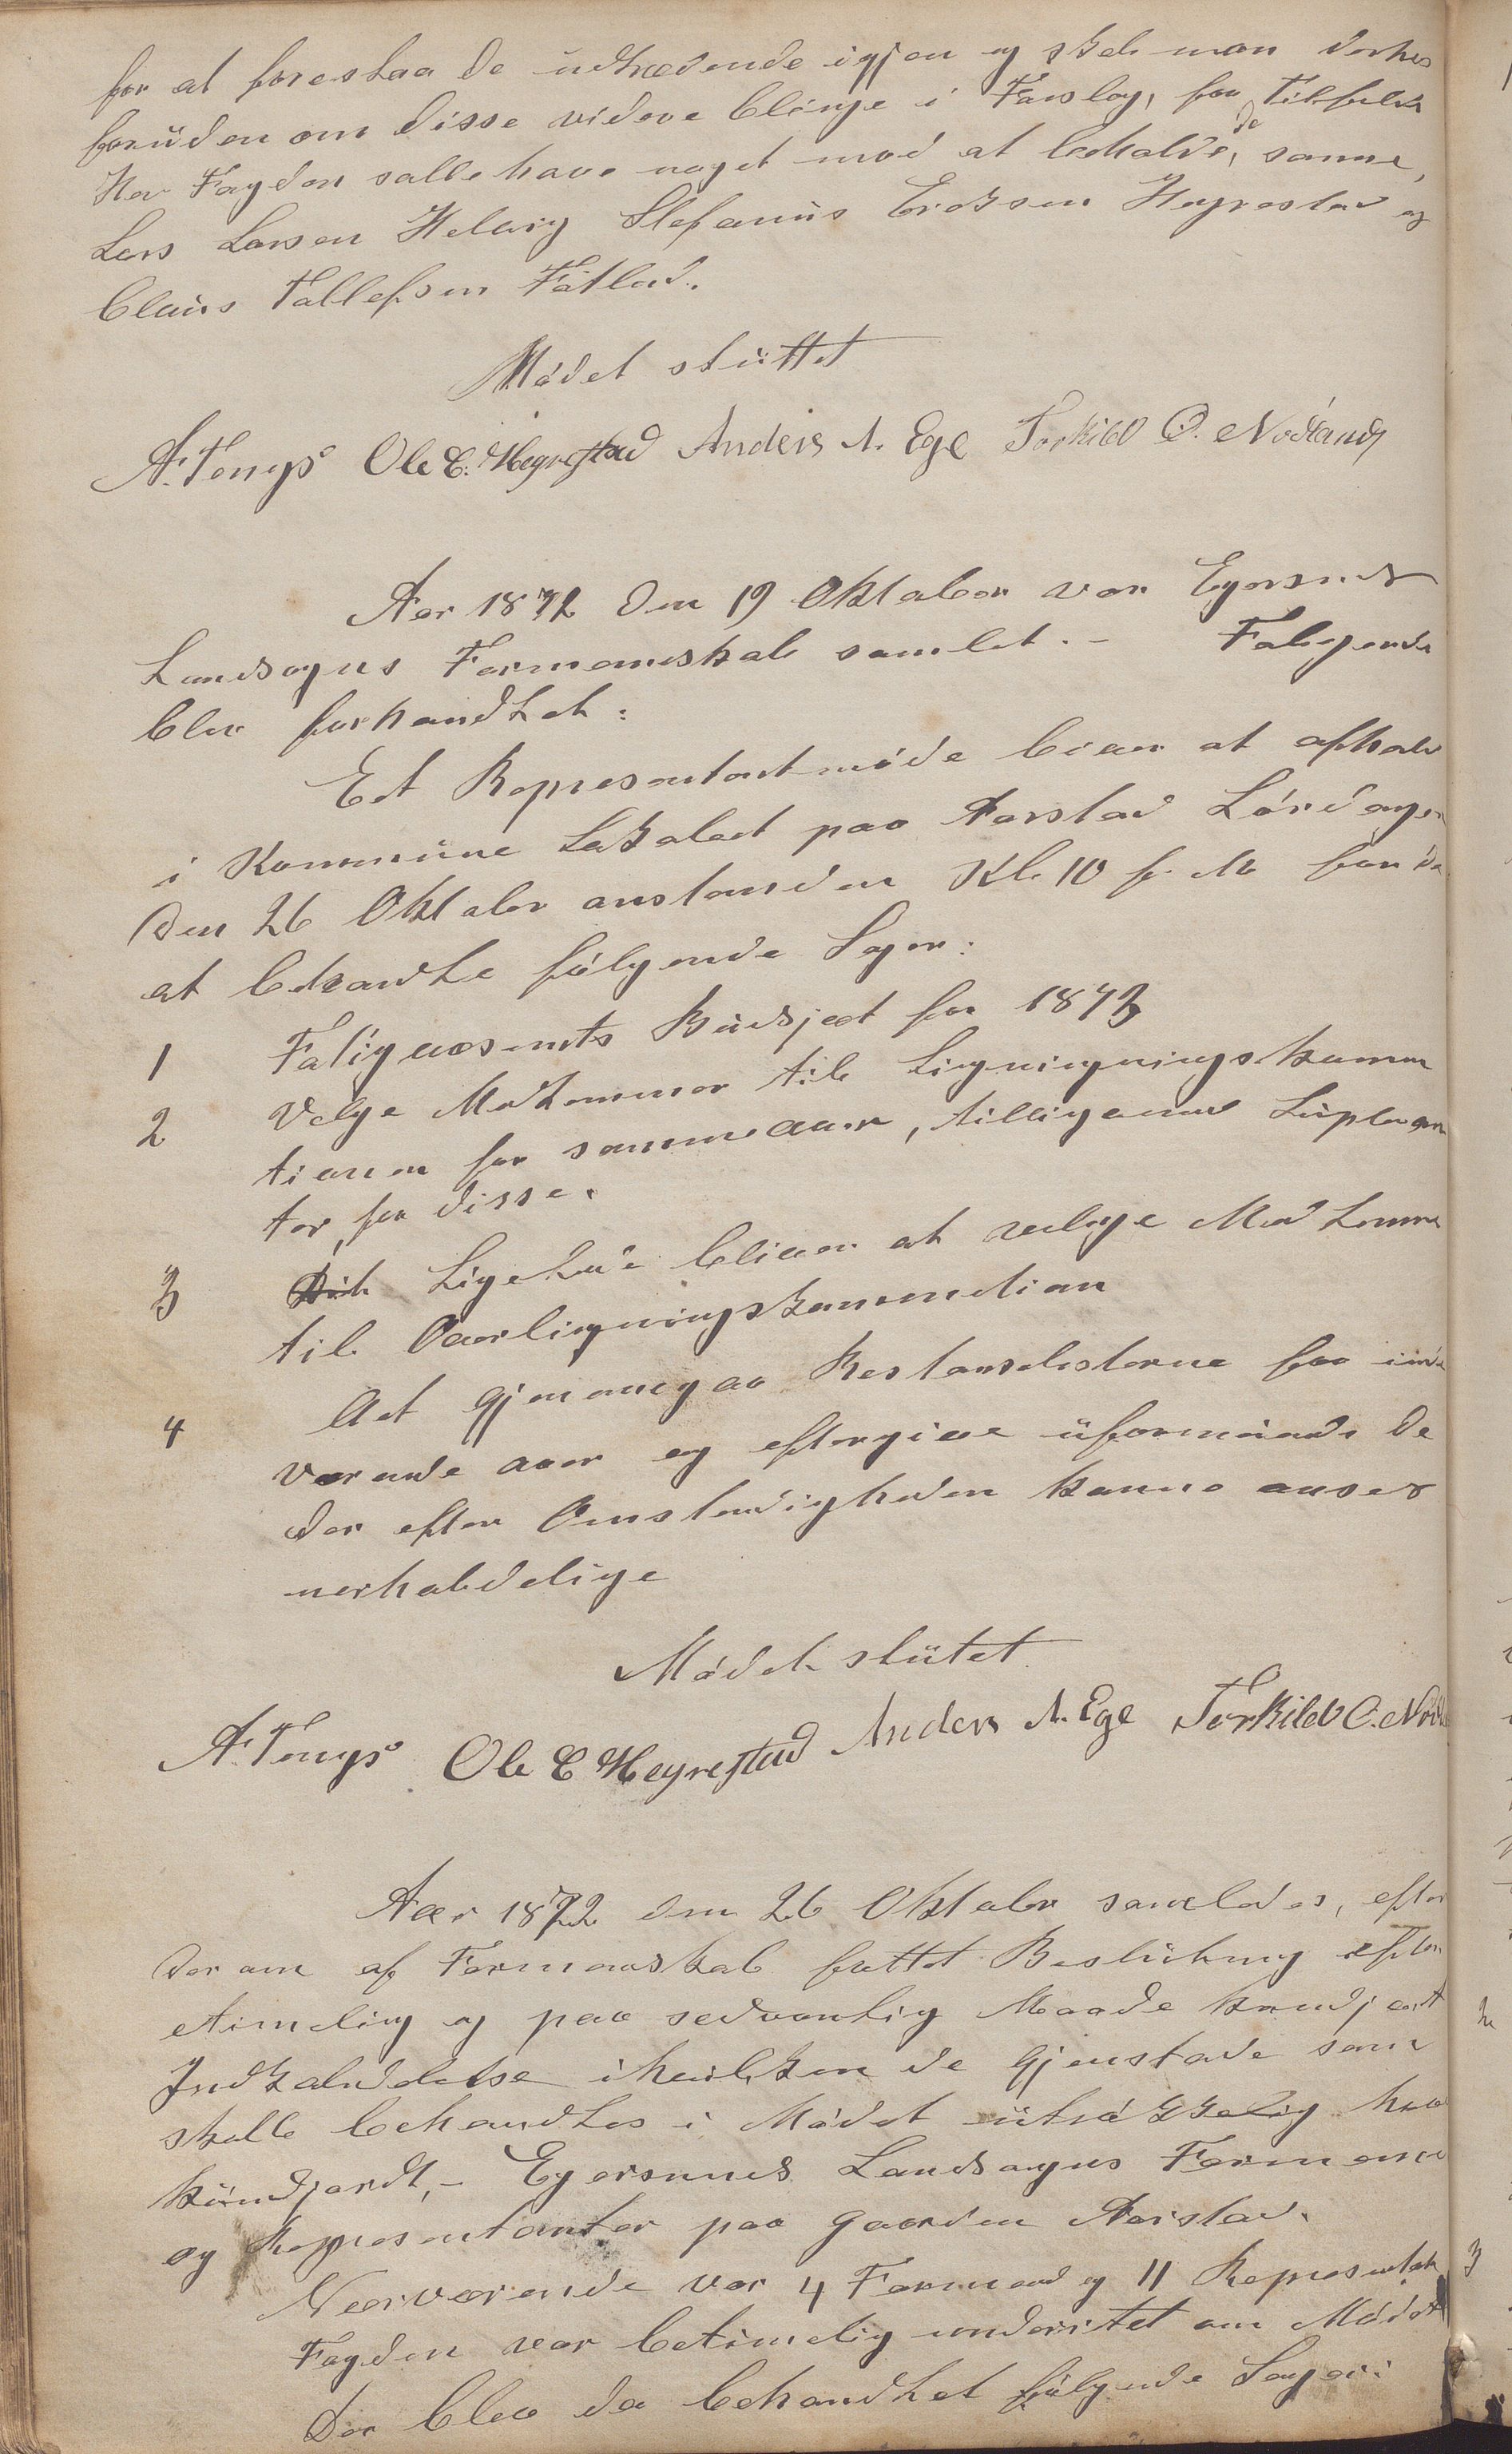 for at forestaa de udtrædende igjen og skal man derhos
foruden om disse videre bliege i Forslag, for Tilfælde
Her Fogden salle have noget mod at beholde, de samme,
Lars Larsen Helvig Stefanus Eriksen Hegrestad og
Claus Tallefsen Fotland.
Mødet sluttet
A. Tengs Ole E. Hegrestad Anders A. Ege Torkild O. Nodland
Aar 1872 den 19 Oktober var Egersunds
Landsogns Formandskab samlet. - Følgende
blev forhandlet:
Et Representantmøde bliver at afhold
i Kommune Lokalet paa Aarstad Lørdagen
den 26 Oktober anstunden Kl. 10 f. M for da
at behandle følgende Sager:
1 Fatigvæsenets Budsjet for 1873
2 Vælge Medlemmer til Ligningningskomm
tionen for samme Aar, tilligemed Suplean
ter for disse.
3 Ligeledes bliver at velge Medlemme
til Overligningskommetion
4 At gjennemgaa Restanselisterne for inde
værende aar og eftergive uformuende De
der efter Omstændigheden kunne anses
uerholdelige
Mødet slutet
A. Tengs Ole E Hegrestad Anders A. Ege Torkild O. Nodl
Aar 1872 den 26 Oktober samledes, efter
derom af Formanskab fattet Beslutning efter
etimelig og paa sedvanlig Maade kundjort
Indkaldelse ihvilken de Gjenstade som
skulle behandles i Mødet utrøkkelig var
kundjordt, - Egersunds Landsogns Formænd
og Representanter paa Gaarden Aarstad.
Nærværende var 4 Formænd og 11 Representan
Fogden var betimelig underrettet om Mødet
Der blev da behandlet følgende Sager: